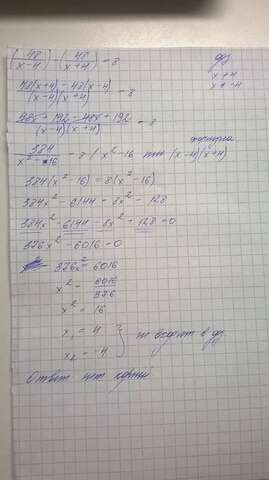 (48/x-4) - (48/x+4) = 8
одз
x ≠ 4
x ≠ -4
48(x+4) - 48(x-4) / (x-4)(x+4) = 8
48x + 192 - 48x + 192 / (x-4)(x+4) = 8
формула
384 / x² - 16 = 8 / x² - 16 (x-4)(x+4)
384(x² - 16) = 8(x² - 16)
384x² - 6144 = 8x² - 128
384x² - 6144 - 8x² + 128 = 0
376x² - 6016 = 0
376x² = 6016
x² = 6016/376
x² = 16
x₁ = 4
x₂ = -4
} не входит в одз
Ответ нет корней